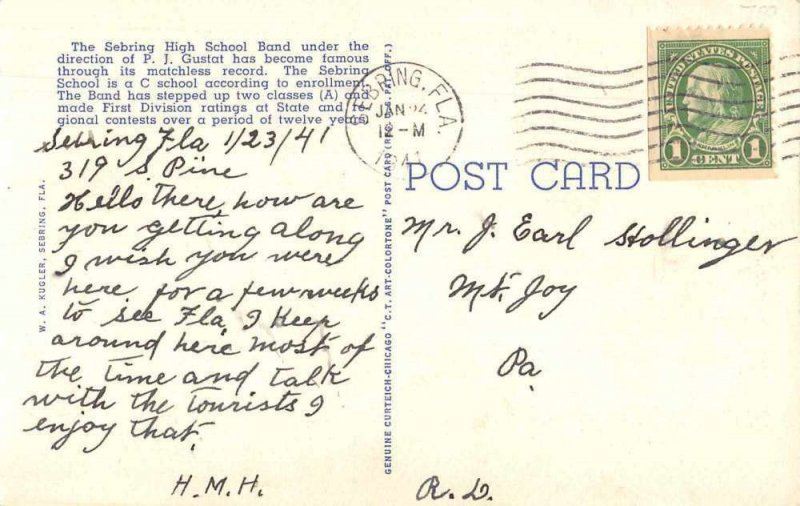 The Sebring High School Band under the
direction of P. J. Gustat has become famous
through its matchless record. The Sebring
School is a C school according to enrollment.
The Band has stepped up two classes (A) and
made First Division ratings at State and
gional contests over a period of twelve years.
SEBRING, FLA.
JAN 24
12 - M
1941
UNITED STATES POSTAGE
1 CENT 1
POST CARD
Sebring Fla 1/23/41
319 S. Pine
Hello there, how are
you getting along
I wish you were
here for a few weeks
to see Fla, I keep
around here most of
the time and talk
with the tourists I
enjoy that.
H.M.H.
Mr. J. Earl Hollinger
Mt. Joy
Pa
R.D.
W. A. KUGLER, SEBRING, FLA.
GENUINE CURTEICH-CHICAGO "C.T. ART-COLORTONE" POST CARD (REG. U.S. PAT. OFF.)